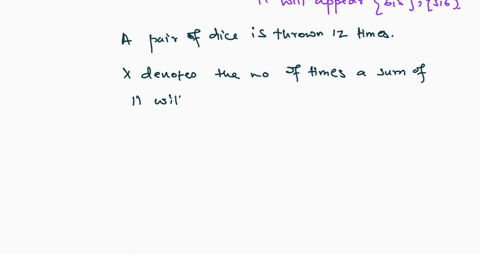 11 will appear {6,5}, {5,6}
A pair of dice is thrown 12 times.
X denotes the no of times a sum of
11 wil